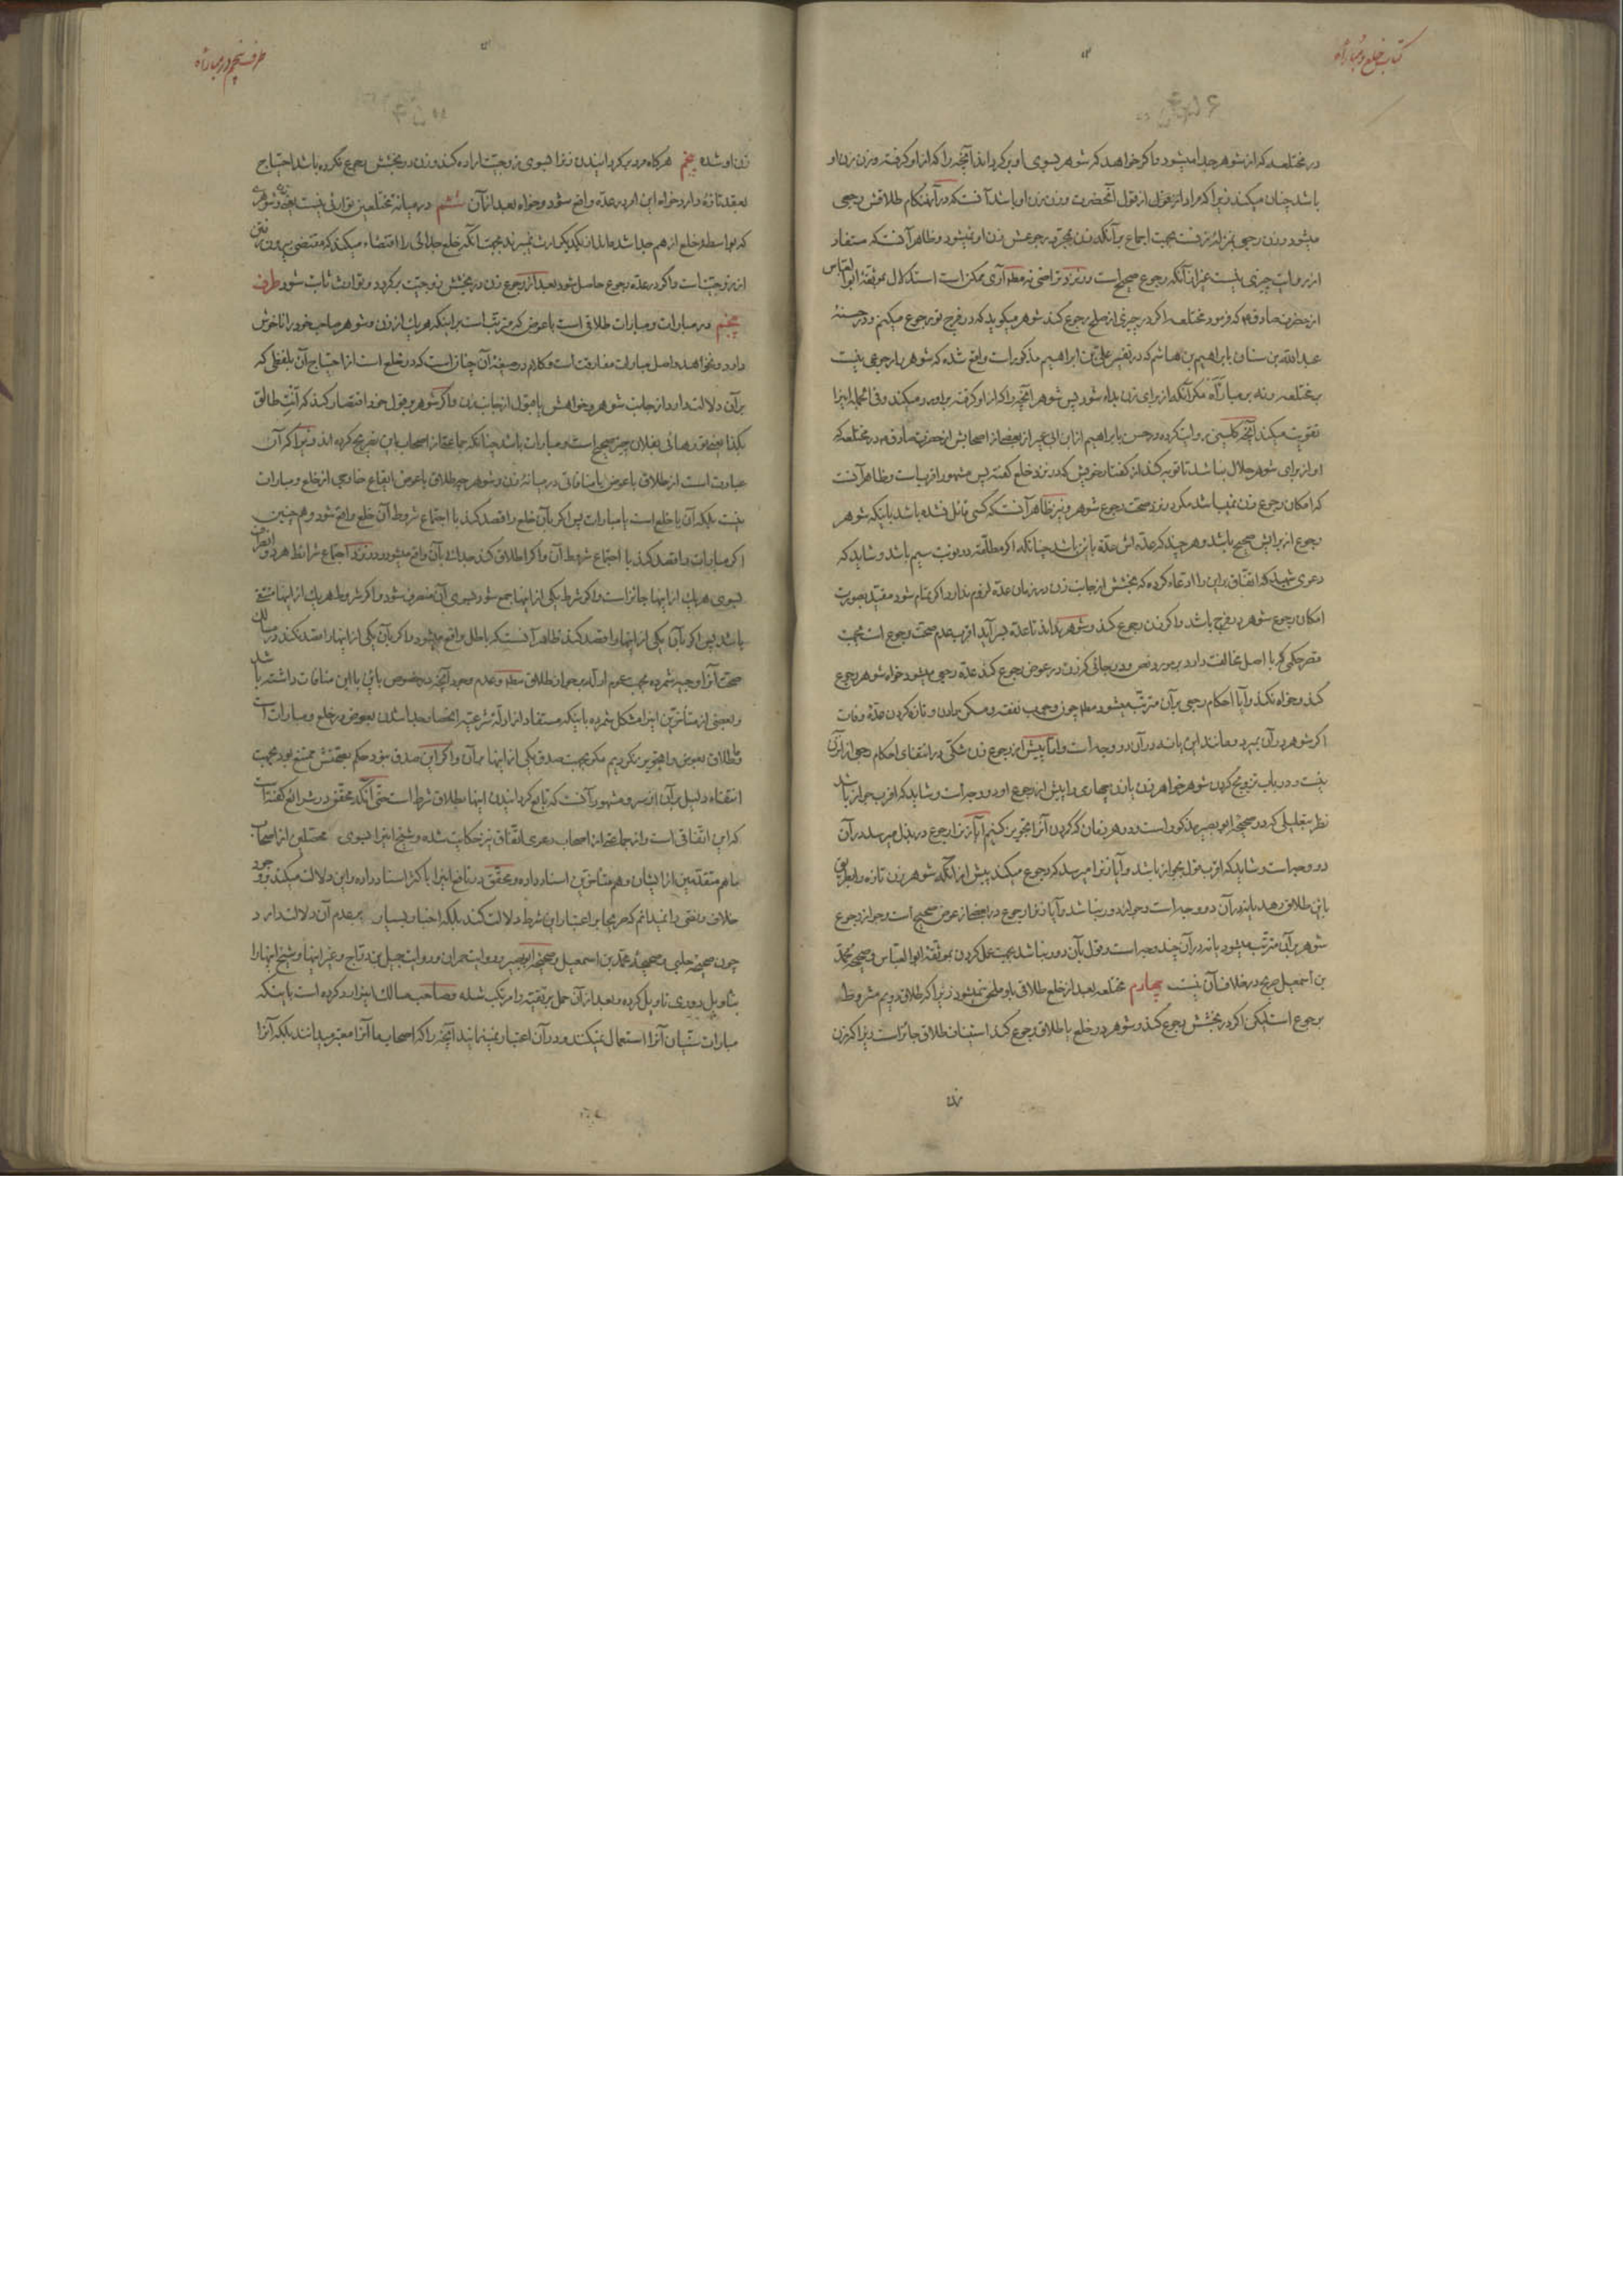 کتاب خلع و مبارأة
در مختلعه که از شوهر جدا میشود و اگر خواهد که شوهر بسوی او برگرداند آنچه را که از او گرفته و زن زن او
باشد چنان میکند زیرا که مراد از قول از قول آنحضرت و زن زن او باشد آنست که در آنهنگام طلاقش رجعی
میشود و زن رجعی بمنزلهٔ زنست بجهت اجماع بر آنکه زن بمجرد رجوعش زن او نمیشود و ظاهر آنست که مستفاد
از روایت چیزی نیست غیر از آنکه رجوع صحیح است و نزد تراضی نه مطه آری ممکن است استدلال بموثقهٔ ابو العباس
از حضرت صادق ع که فرمود مختلعه اگر در چیزی از صلح رجوع کند شوهر میگوید که در فرج تو رجوع میکنم و در حسنهٔ
عبد الله بن سنان یا ابراهیم بن هاشم که در تفسیر علی بن ابراهیم مذکور است واقع شده که شوهر را رجوعی نیست
بر مختلعه و نه بر مبارأة مگر آنکه از برای زن بداء شود پس شوهر آنچه را که از او گرفته بر او رد میکند و فی الجمله اینرا
تقویت میکند آنچه کلینی روایت کرده در حسن یا ابراهیم از ابن ابی عمیر از بعضی از اصحابش از حضرت صادق ع در مختلعه که
او از برای شوهر حلال نباشد تا توبه کند از گفتار خویش که در نزد خلع گفته پس مشهور اقربست و ظاهر آنست
که امکان رجوع زن نمیباشد مگر در نزد صحت رجوع شوهر و نیز ظاهر آنست که کسی قائل نشده باشد باینکه شوهر
رجوع از برایش صحیح باشد و هر چند که عدّه اش عدّهٔ باین باشد چنانکه اگر مطلّقه در نوبت سیم باشد و شاید که
دعوی شهید که اتفّاق بر این را ادعاء کرده که بخشش از جانب زن در زمان عدّه لزوم ندارد اگر تمام شود مقید بصورت
امکان رجوع شوهر در فرج باشد و اگر زن رجوع کند و شوهر نداند تا عدّه بسر آید اقرب عدم صحّت رجوع است بجهت
قصر حکمی که با اصل مخالفت دارد بر مورد نص و در جائی که زن در عوض رجوع کند عدّه رجعی میشود خواه شوهر رجوع
کند و خواه نکند و آیا احکام رجعی بر آن مترتّب میشود مطه چون وجوب نفقه و مسکن دادن و تازه کردن عدّهٔ وفات
اگر شوهر در آن بمیرد و مانند این یا نه در آن دو وجه است و امّا پیش از رجوع زن شکّی در انتفای احکام رجعی از آن زن
نیست و در باب تزویج کردن شوهر خواهر زن یا زن چهارمی را پیش از رجوع او دو وجه است و شاید که اقرب جواز باشد
نظر بتعلیلی که در صحیحهٔ ابو بصیر مذکور است و در هر زمان که کردن آنرا تجویز کنیم آیا زنرا رجوع در بذل میرسد در آن
دو وجه است و شاید که اقرب قول بجواز باشد و آیا زنرا میرسد که رجوع میکند پیش از آنکه شوهر زن تازه را بطریق
باین طلاق دهد یا نه در آن دو وجه است و جواز دور نباشد و آیا زنرا رجوع در بعضی از عوض صحیح است و جواز رجوع
شوهر بر آن مترتّب میشود یا نه در آن چند وجه است و قول بآن دور نباشد بجهت عمل کردن بموثقهٔ ابو العباس و صحیحهٔ محمّد
بن اسمعیل صریح در خلاف آن نیست چهارم مختلعه بعد از خلع طلاق باو ملحق نمیشود زیرا که طلاق دویم مشروط
برجوع است لیکن اگر در بخشش رجوع کند و شوهر در خلع یا طلاق رجوع کند استیناف طلاق جائز است زیرا که زن
زن
طرف پنجم در مبارأة
زن او شده پنجم هرگاه مرد برگردانیدن زنرا بسوی زوجیّت اراده کند و زن در بخشش رجوع نکرده باشد احتیاج
بعقد تازه دارد خواه این امر در عدّه واقع شود و خواه بعد از آن ششم در میانهٔ مختلعین توارثی نیست یعنی زن و شوهری
که بواسطه خلع از هم جدا شده اند از یکدیگر ارث نمیبرند بجهت آنکه خلع جدائی را اقتضاء میکند که مقتضی بیرون رفتن
از زوجیّت است و اگر در عدّه رجوع حاصل شود بعد از رجوع زن در بخشش زوجیّت برگردد و توارث ثابت شود طرف
پنجم در مبارات و مبارات طلاقی است با عوض که مترتّب است بر اینکه هر یک از زن و شوهر صاحب خود را ناخوش
دارد و نخواهد و اصل مبارات مفارقت است و کلام در صیغهٔ آن چنانست که در خلع است از احتیاج آن بلفظی که
بر آن دلالت دارد از جانب شوهر و خواهش یا قبول از جانب زن و اگر شوهر بر قول خود اقتصار کند که أنتِ طالق
بکذا یعنی تو رهائی بفلان چیز صحیح است و مبارات باشد چنانکه جماعتی از اصحاب باین تصریح کرده اند زیرا که آن
عبارت است از طلاق با عوض با منافاتی در میانهٔ زن و شوهر چه طلاق با عوض ایقاع خارجی از خلع و مبارات
نیست بلکه آن یا خلع است یا مبارات پس اگر بآن خلع را قصد کند با اجتماع شروط آن خلع واقع شود و هم چنین
اگر مبارات را قصد کند با اجتماع شروط آن و اگر اطلاق کند جدائی بآن واقع میشود و در نزد اجتماع شرایط هر دو
بسوی هر یک از اینها جائز است و اگر شرط یکی از اینها جمع شود بسوی آن منصرف شود و اگر شروط هر یک از اینها منتفی
باشد پس اگر بآن یکی از اینها را قصد کند ظاهر آنست که باطل واقع میشود و اگر بآن یکی از اینها را قصد نکند در مسالک
صحّت آنرا وجیه شمرده بجهت عموم ادلّه بر جواز طلاق مطه و عدم وجود آنچه در خصوص باین با این منافات داشته باشد
و بعضی از متأخّرین اینرا مشکل شمرده باینکه مستفاد از ادلّه شرعیّه انحصار جدا شدن بعوض در خلع و مبارات است
و طلاق بعوض را تجویز نکردیم مگر بجهت صدق یکی از اینها بر آن و اگر این صدق نبود حکم بصحّتش ممتنع بود بجهت
انتفاء دلیل بر آن ازین رو مشهور آنست که تابع گردانیدن اینها بطلاق شرط است حتّی آنکه محقّق در شرائع گفته است
که این اتّفاقی است و از جماعتی از اصحاب دعوی اتّفاق نیز حکایت شده و شیخ اینرا بسوی محصّلین از اصحاب
ما هم متقدّمین از ایشان و هم متأخّرین اسناد داده و محقّق در نافع اینرا باکثر اسناد داده و این دلالت میکند بر وجود
خلاف و نصّی را نمیدانم که صریحا بر اعتبار این شرط دلالت کند بلکه اخبار بسیار بر عدم آن دلالت دارد
چون صحیحهٔ حلبی و صحیحهٔ محمّد بن اسمعیل و صحیحهٔ ابو بصیر و روایت حمران و روایت جمیل بن درّاج و غیر اینها و شیخ اینها را
بتاویل دوری تاویل کرده و بعد از آن حمل بر تقیّه را مرتکب شده و صاحب مسالک اینرا رد کرده است باینکه
مبارات سنّیان آنرا استعمال نمیکنند و در آن اعتبار نمینمایند آنچه را که اصحاب ما آنرا معتبر میدانند بلکه آنرا